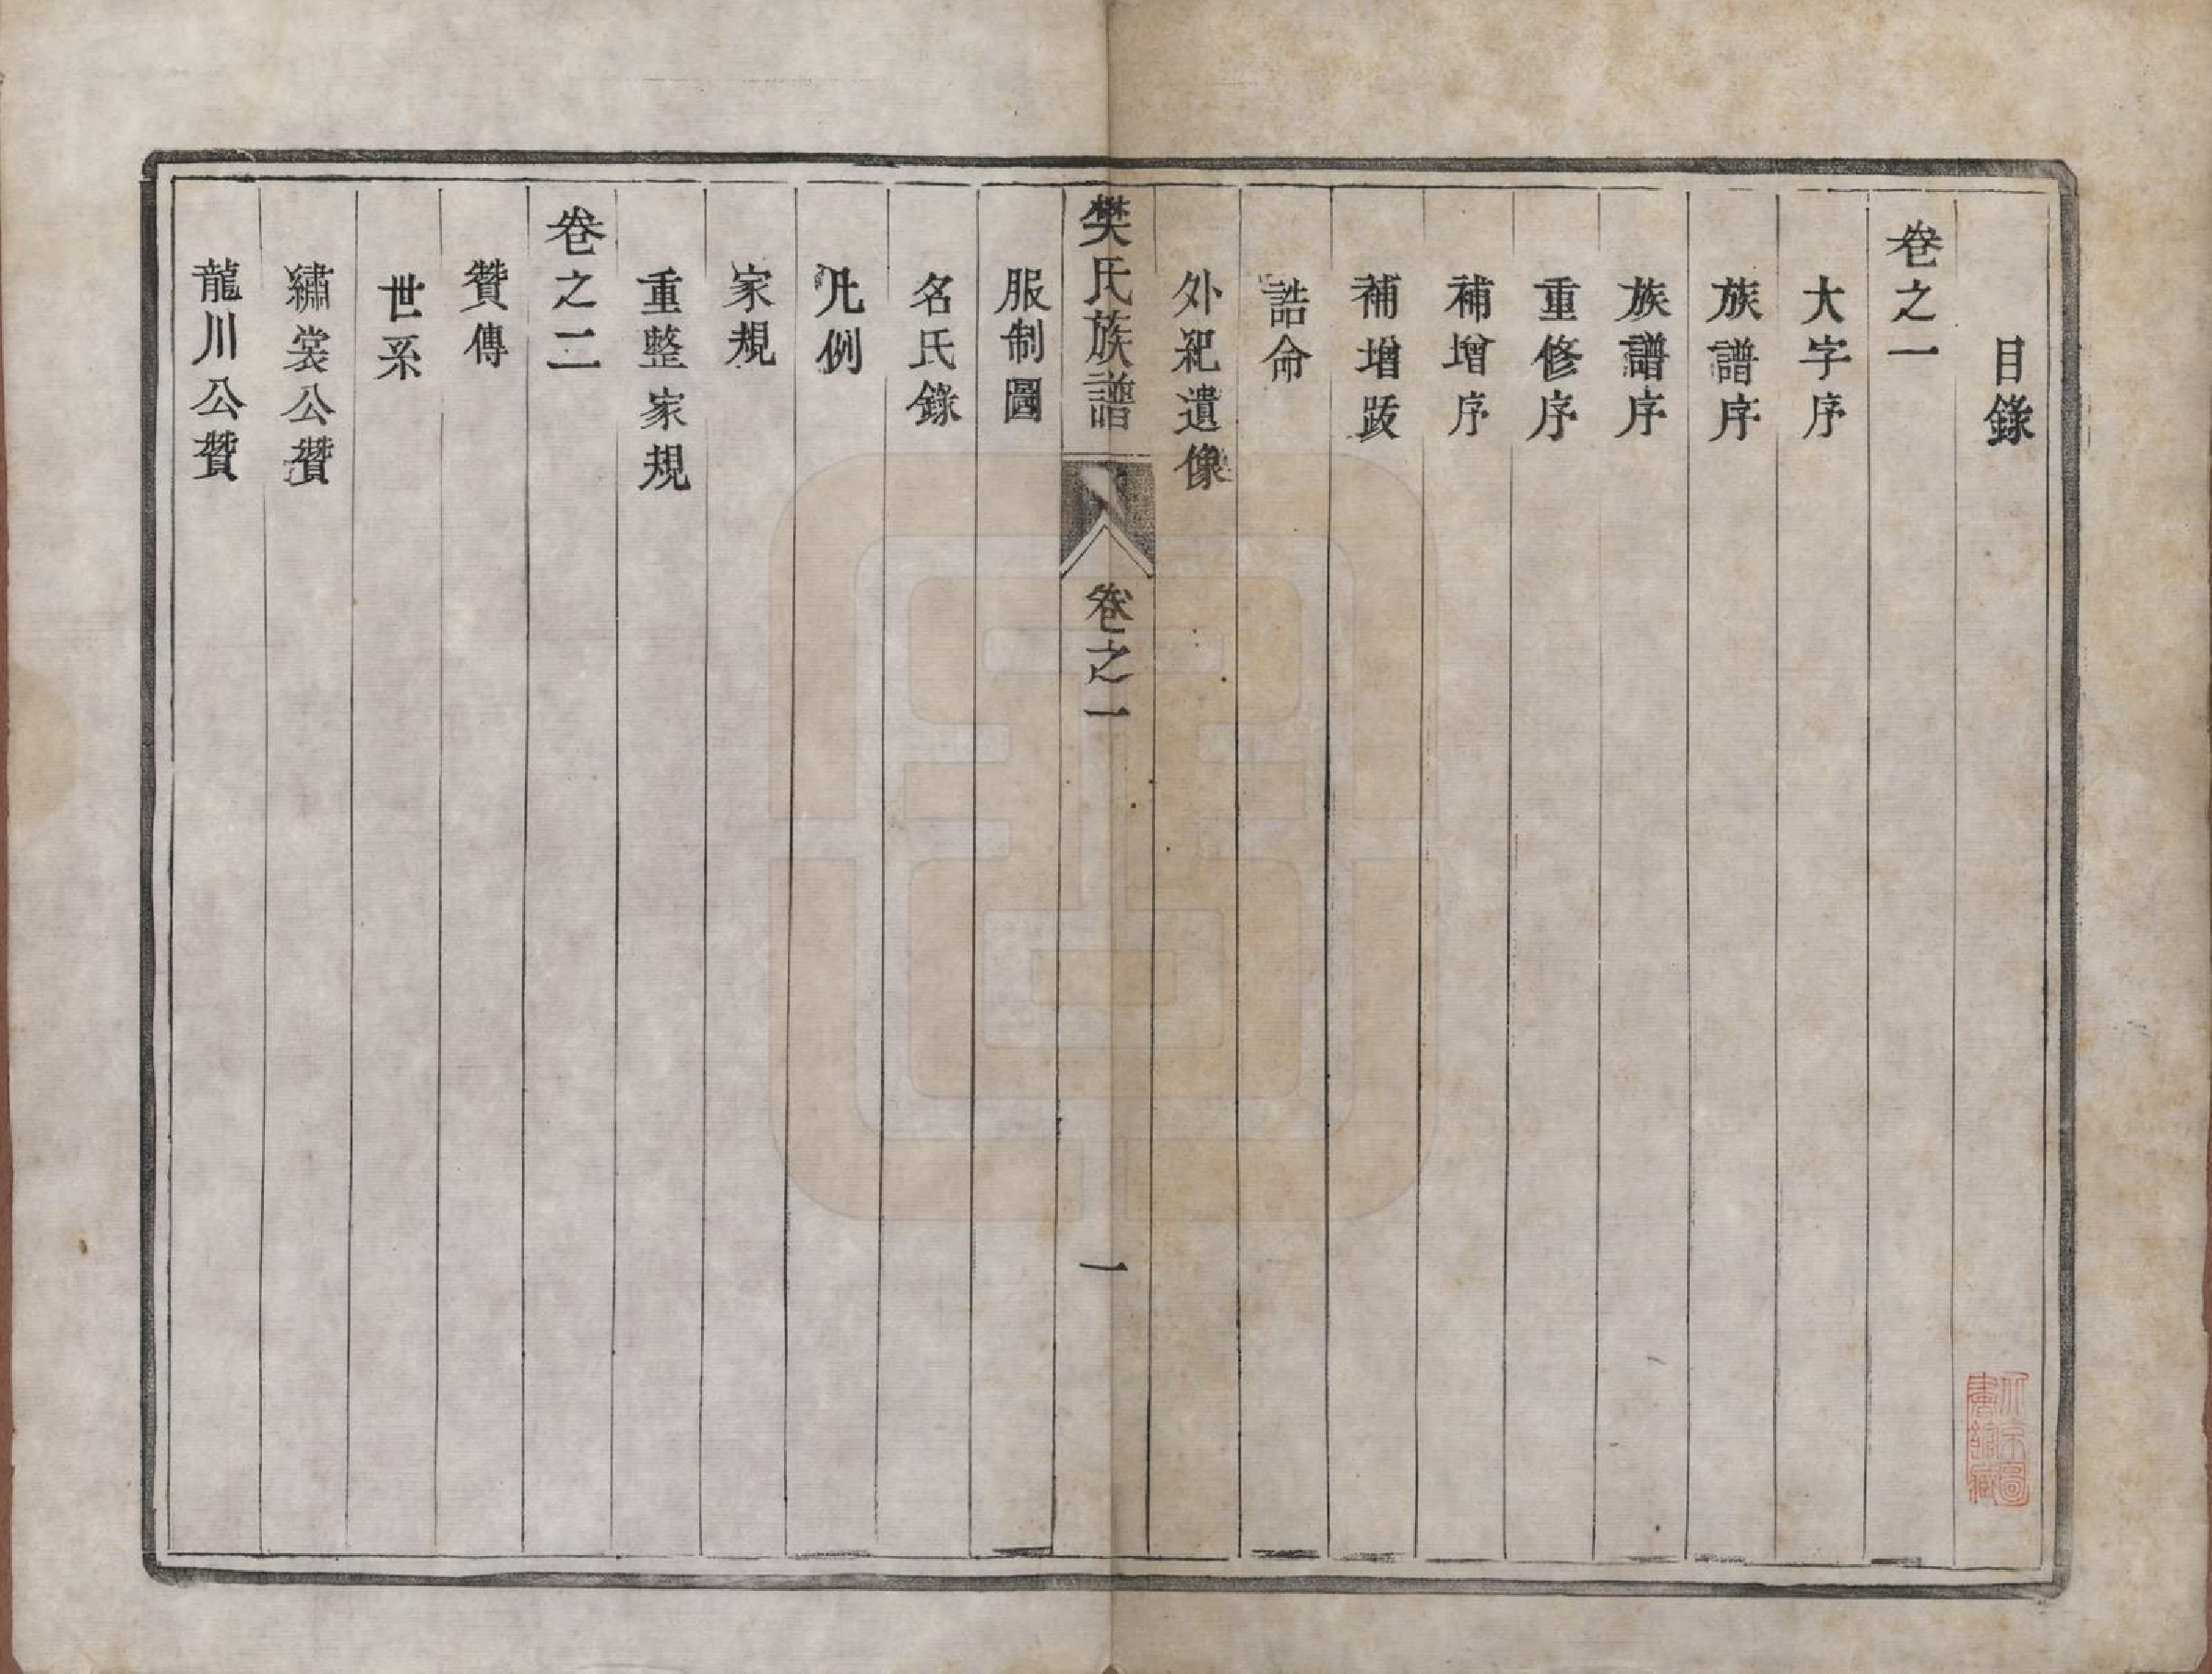 目錄
卷之一
大字序
族譜序
族譜序
重修序
補增序
補增跋
誥命
外祀遺像
樊氏族譜 卷之一 一
服制圖
名氏錄
凡例
家規
重整家規
卷之二
贊傳
世系
繡裳公贊
龍川公贊
北京圖書館藏